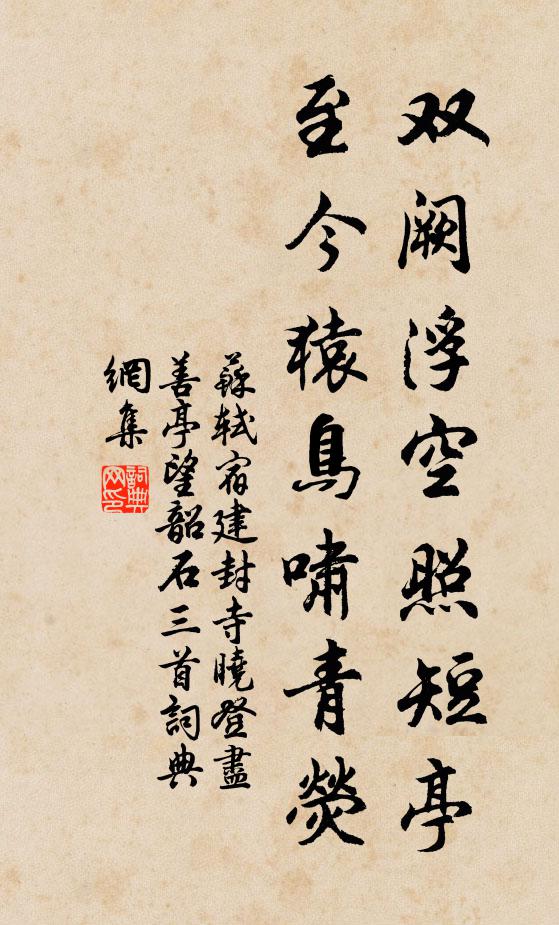 双阙浮空照短亭
至今猿鳥嘯青熒
蘇軾宿建封寺曉登盡
善亭望韶石三首詞典
網集
詞典
网印